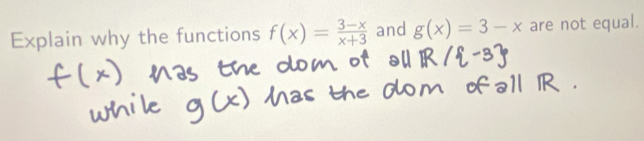 Explain why the functions f(x) = \frac{3-x}{x+3} and g(x) = 3 − x are not equal.
f(x) has the dom of all ℝ/{-3}
while g(x) has the dom of all ℝ.